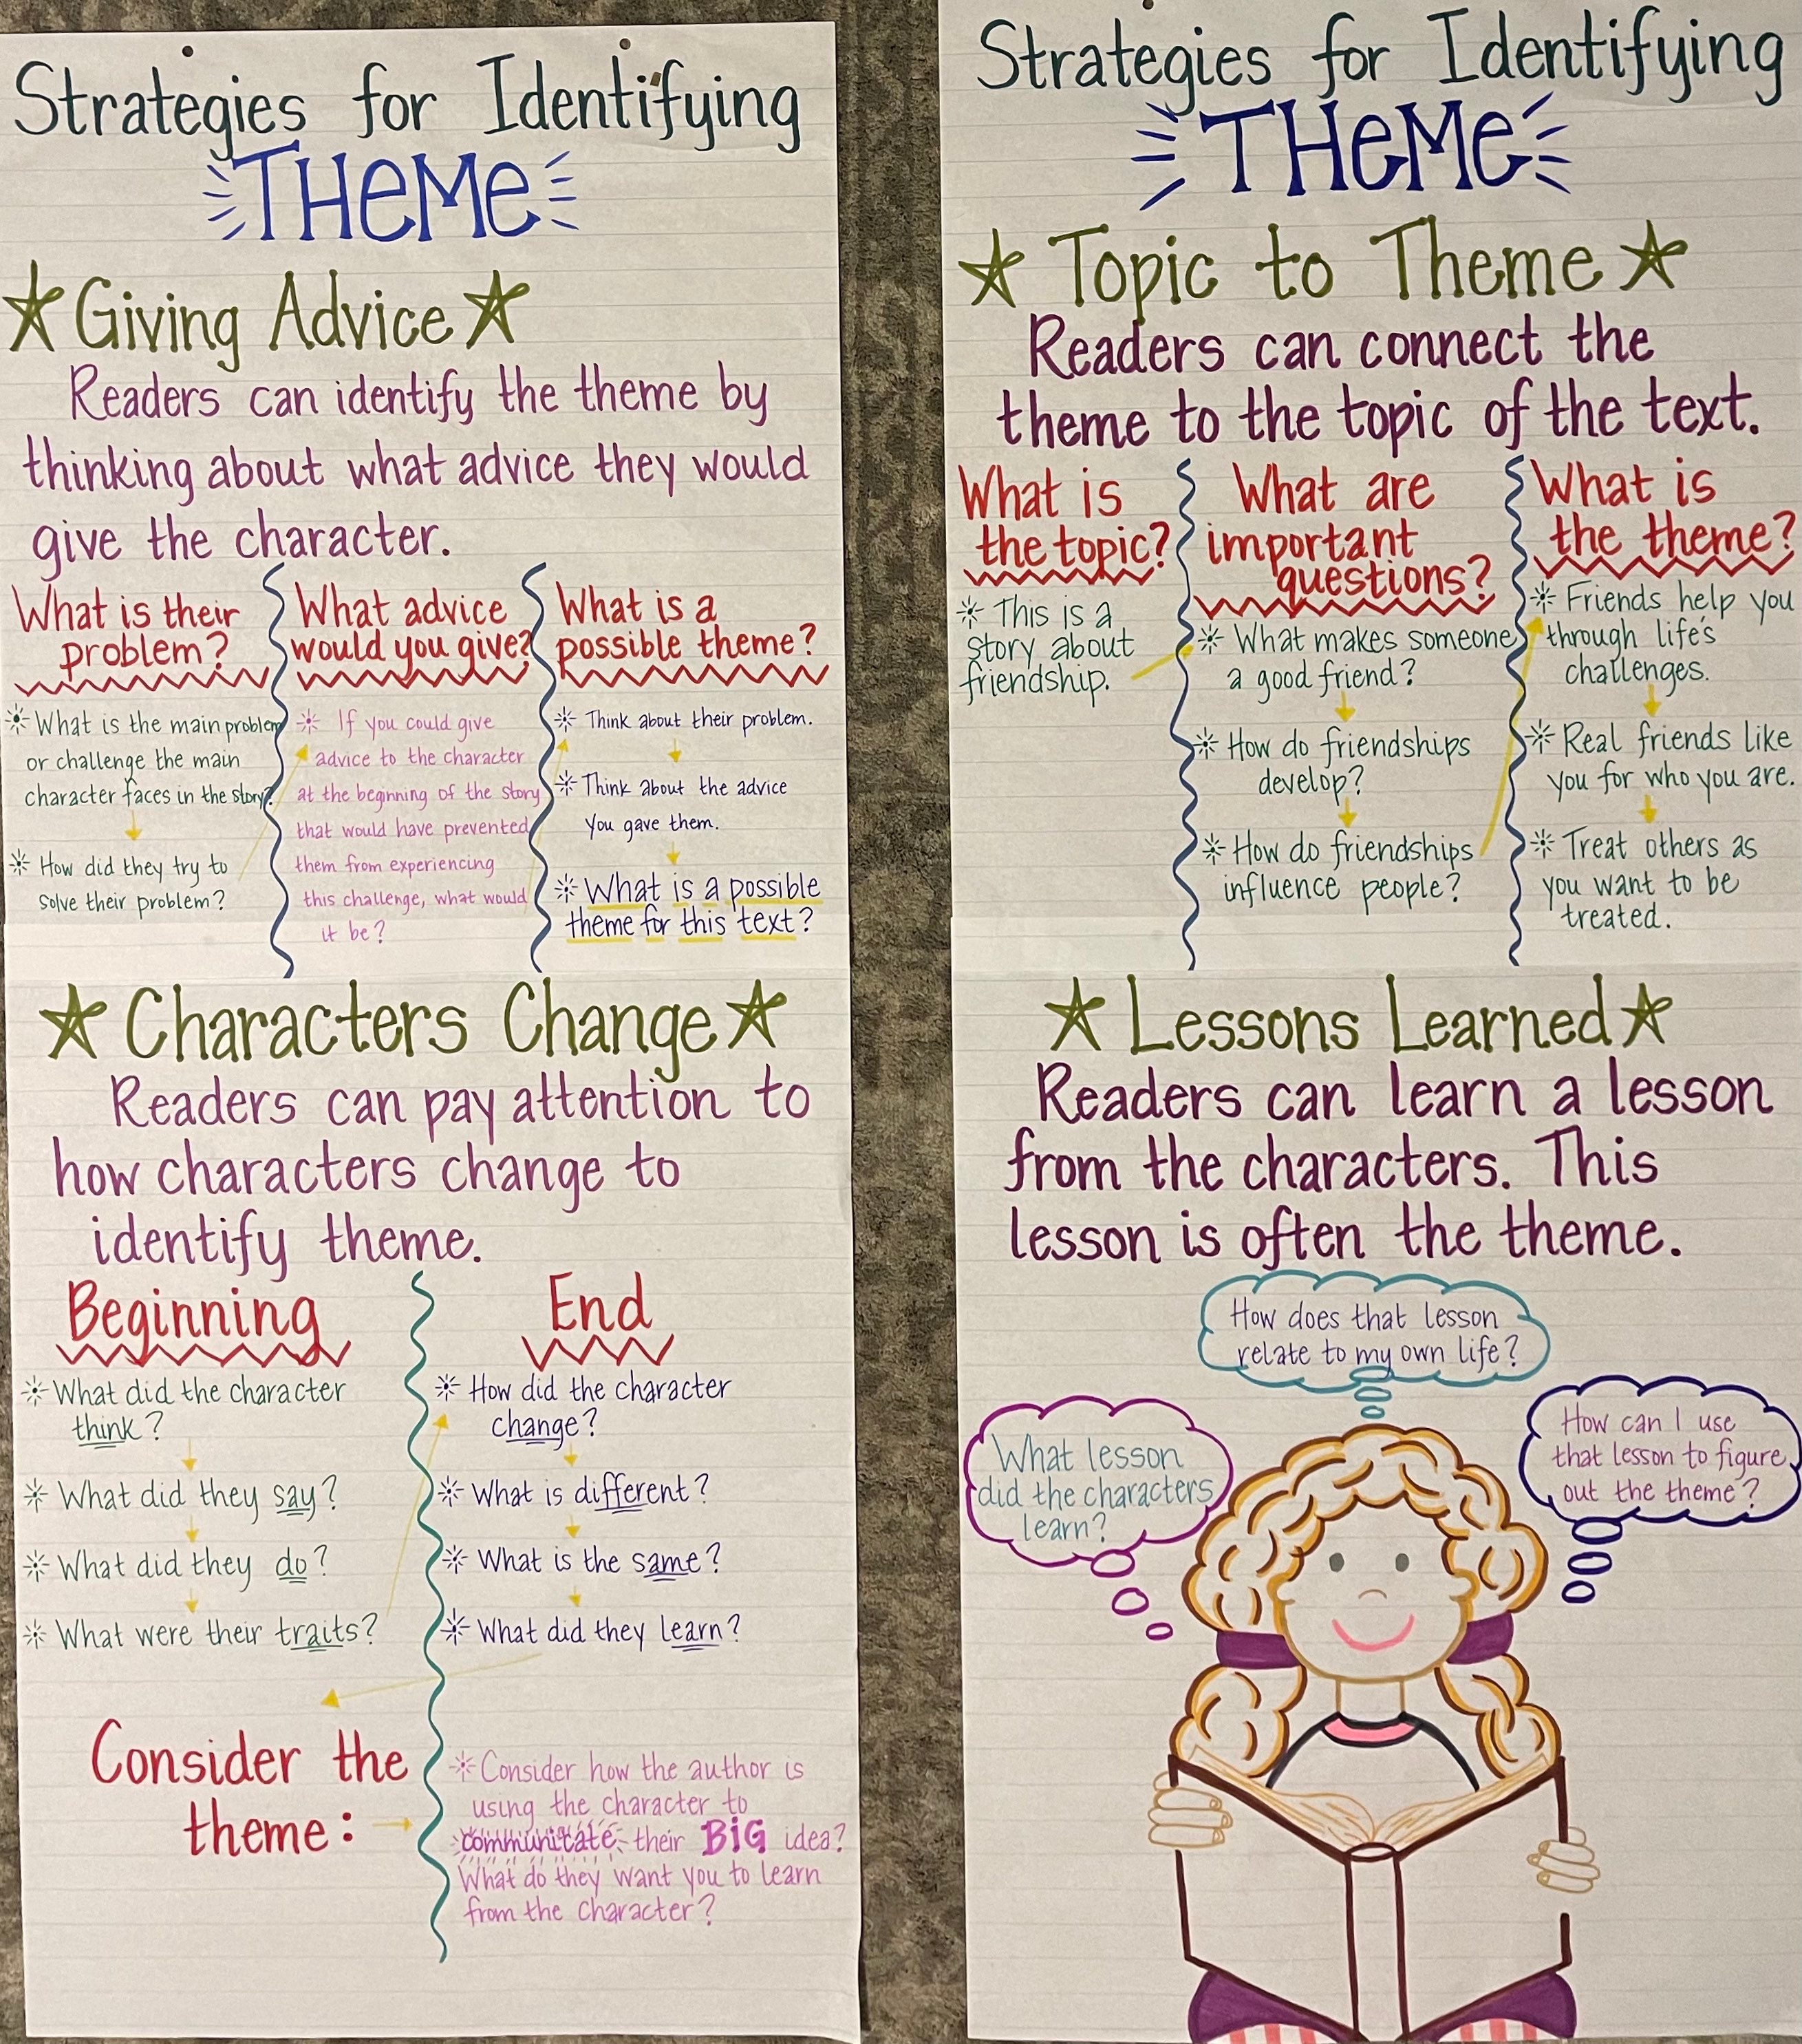 Strategies for Identifying
THEME
Giving Advice
Readers can identify the theme by
thinking about what advice they would
give the character.
What is their
problem?
What is the main problem
or challenge the main
character faces in the story?
How did they try to
solve their problem?
What advice
would you give?
If you could give
advice to the character
at the beginning of the story
that would have prevented
them from experiencing
this challenge, what would
it be?
What is a
possible theme?
Think about their problem.
Think about the advice
you gave them.
What is a possible
theme for this text?
Characters Change
Readers can pay attention to
how characters change to
identify theme.
Beginning
What did the character
think?
What did they say?
What did they do?
What were their traits?
End
How did the character
change?
What is different?
What is the same?
What did they learn?
Consider the
theme:
Consider how the author is
using the character to
communicate their BiG idea?
What do they want you to learn
from the character?
Strategies for Identifying
THEME
Topic to Theme
Readers can connect the
theme to the topic of the text.
What is
the topic?
This is a
story about
friendship.
What are
important
questions?
What makes someone
a good friend?
How do friendships
develop?
How do friendships
influence people?
What is
the theme?
Friends help you
through life's
challenges.
Real friends like
you for who you are.
Treat others as
you want to be
treated.
Lessons Learned
Readers can learn a lesson
from the characters. This
lesson is often the theme.
What lesson
did the characters
learn?
How does that lesson
relate to my own life?
How can I use
that lesson to figure
out the theme?